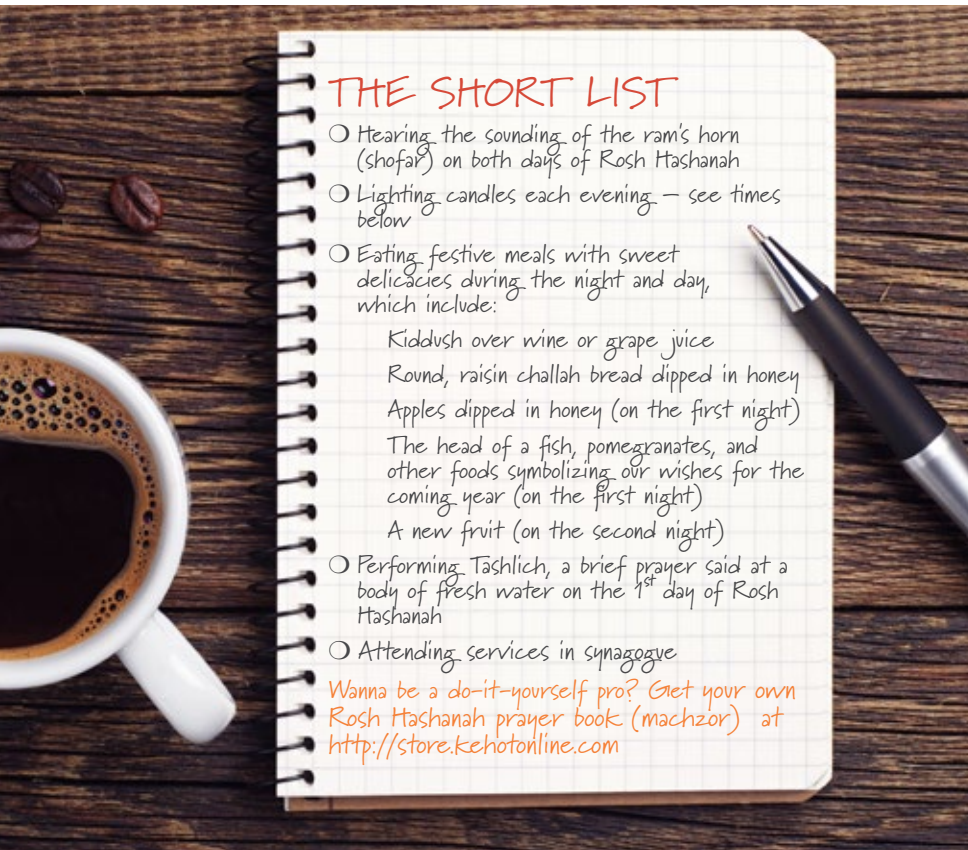 THE SHORT LIST
Hearing the sounding of the ram's horn
(shofar) on both days of Rosh Hashanah
Lighting candles each evening – see times
below
Eating festive meals with sweet
delicacies during the night and day,
which include:
Kiddush over wine or grape juice
Round, raisin challah bread dipped in honey
Apples dipped in honey (on the first night)
The head of a fish, pomegranates, and
other foods symbolizing our wishes for the
coming year (on the first night)
A new fruit (on the second night)
Performing Tashlich, a brief prayer said at a
body of fresh water on the 1st day of Rosh
Hashanah
Attending services in synagogue
Wanna be a do-it-yourself pro? Get your own
Rosh Hashanah prayer book (machzor) at
http://store.kehotonline.com